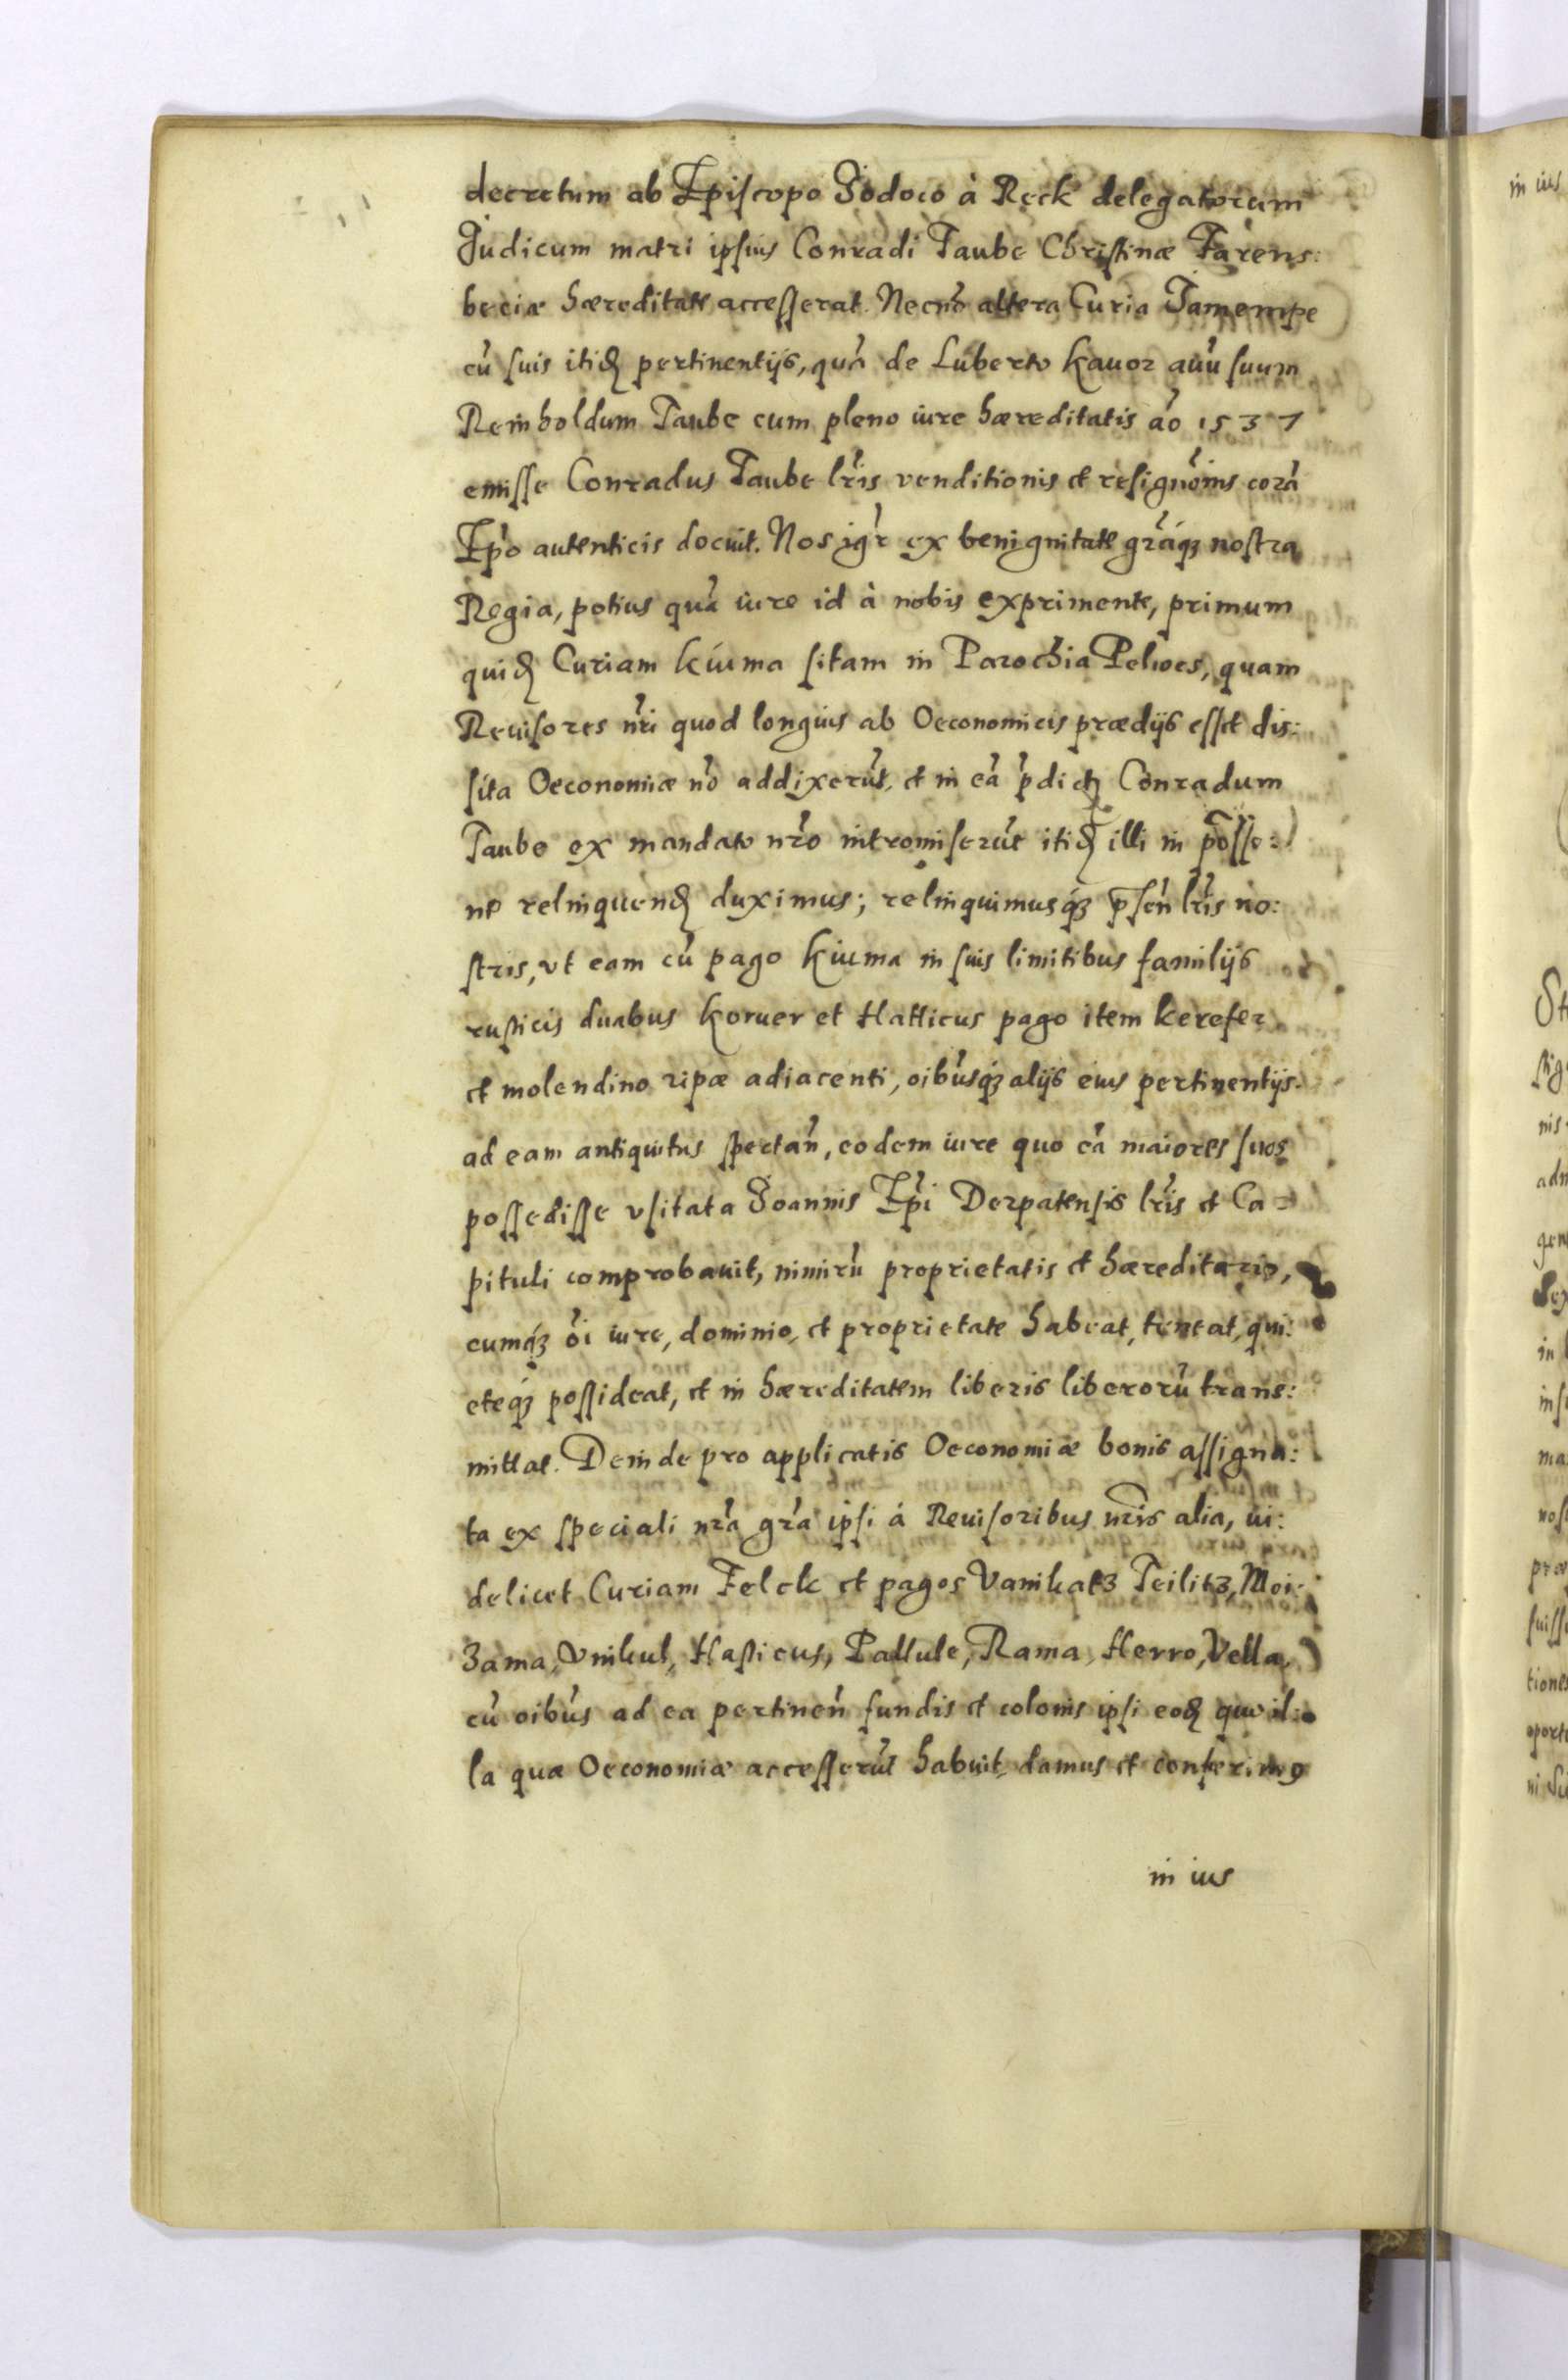 decretum ab Episcopo Jodoco à Reck delegatorum
Judicum matri ipsius Conradi Taube Christinæ Farens:
beciæ hæreditate accesserat. Necno altera Curia Tamempe
cũ suis itid pertinentijs, quã de Luberto Kauor auũ suum
Reinholdum Taube cum pleno iure hæreditatis ao 1537
emisse Conradus Taube lris venditionis et resignõnis corã
Epo autenticis docuit. Nos igr ex benignitate graqꝫ nostra
Regia, potius quã iure id à nobis exprimente, primum
quid Curiam Kiuma sitam in Parochia Pelwes, quam
Reuisores nri quod longius ab Oeconomicis prædijs esset dis:
sita Oeconomiæ no addixerũt, et in eã pdict Conradum
Taube ex mandato nro intromiserũt itid illi in posse:
ne relinquend duximus; relinquimusqꝫ psen lris no:
stris, vt eam cũ pago Kiuma in suis limitibus familijs
rusticis duabus Koruer et Hatticus pago item Kerefer
et molendino ripæ adiacenti, oibusqꝫ alijs eius pertinentijs
ad eam antiquitus spectan, eodem iure quo eã maiores suos
possedisse vsitata Joannis Epi Derpatensis lris et Ca=
pituli comprobauit, nimirũ proprietatis et hæreditario,
cumqꝫ oi iure, dominio, et proprietate habeat, teneat, qui:
eteqꝫ possideat, et in hæreditatem liberis liberorũ trans:
mittat. Deinde pro applicatis Oeconomiæ bonis assigna:
ta ex speciali nra gra ipsi á Reuisoribus nris alia, ui:
delicet Curiam Felck et pagos Vanikatꝫ Teilitꝫ, Moi:
ꝫama, Vnikul, Hasticus, Pallule, Rama, Herro, Vella,
cũ oibus ad ea pertinen fundis et colonis ipsi eod quo il:
la quæ Oeconomiæ accesserũt habuit, damus et conferimꝰ
in ius